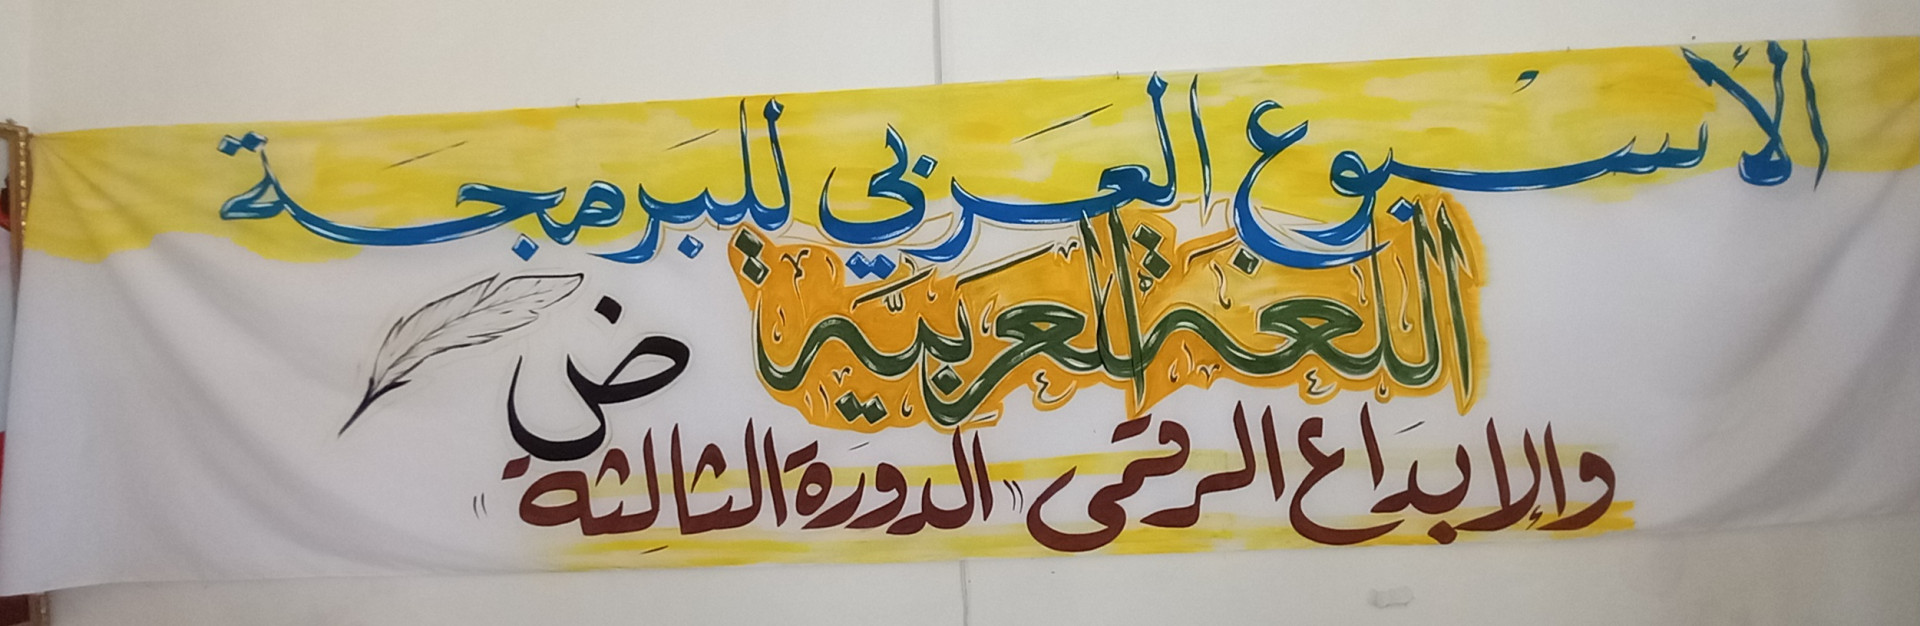 الأسبوع العربي للبرمجة
اللغة العربية
ض
والإبداع الرقمي "الدورة الثالثة"